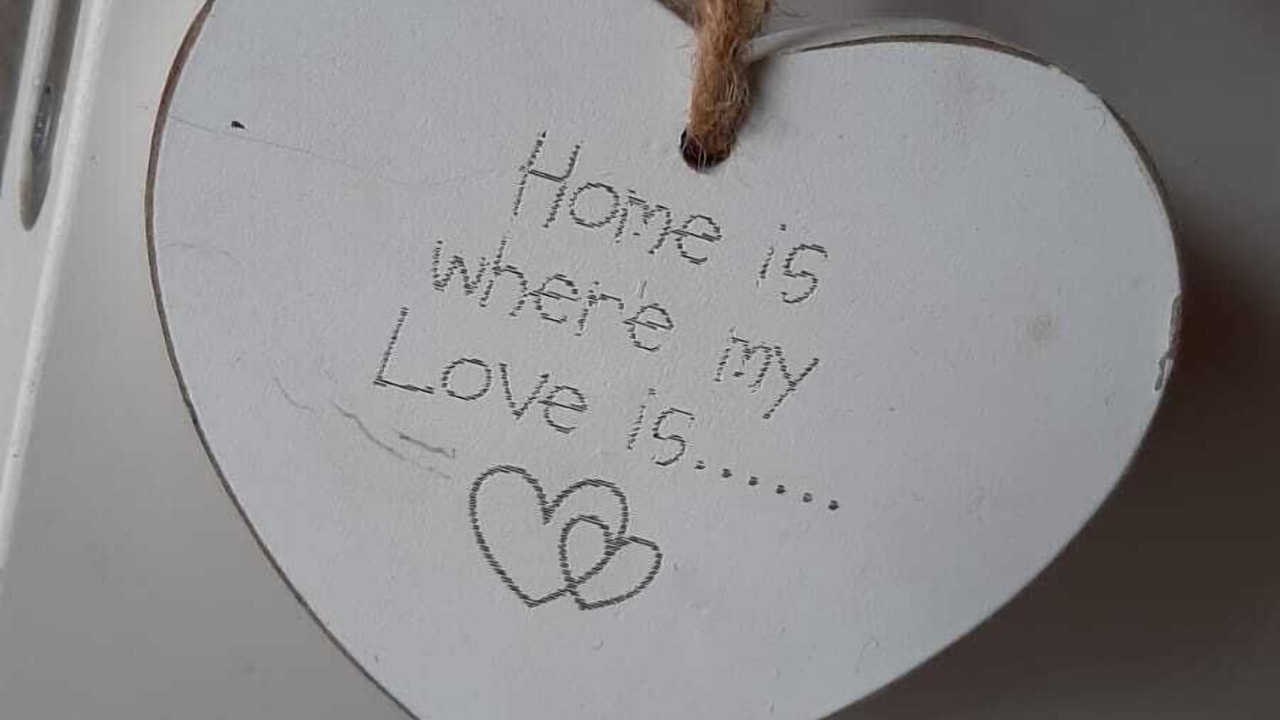 Home is
where my
Love is......